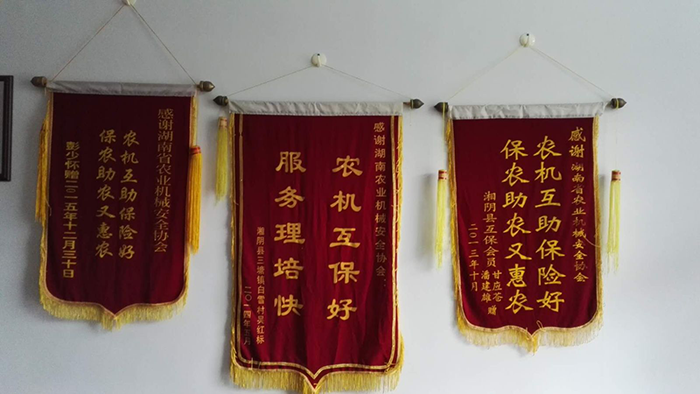 感谢湖南省农业机械安全协会
农机互助保险好
保农助农又惠农
彭少怀赠二〇一五年十二月三十日
感谢湖南农业机械安全协会:
农机互保好
服务理培快
湘阴县三塘镇白雪村吴红标
二〇一四年 月
感谢湖南省农业机械安全协会
农机互助保险好
保农助农又惠农
湘阴县互保会员甘应苍 潘建雄 赠
二〇一三年十月